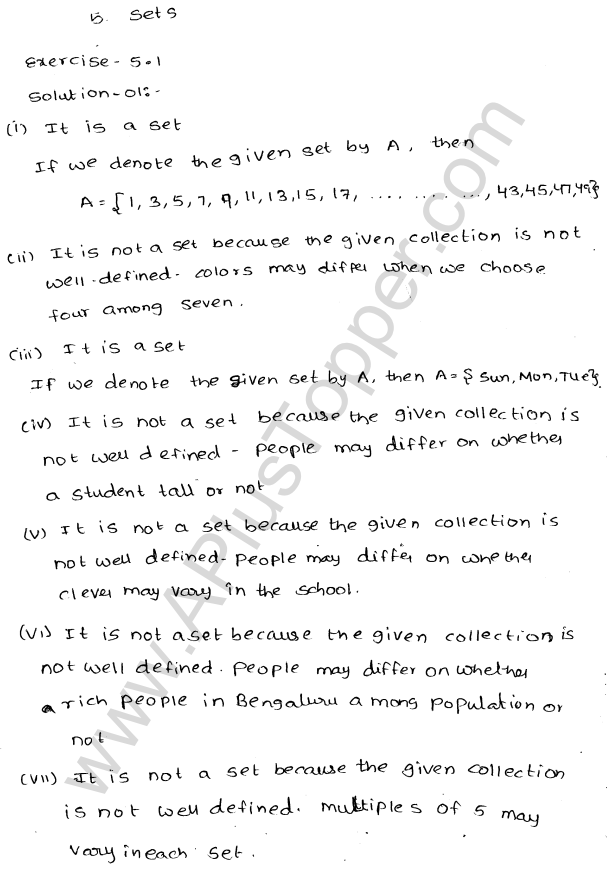 5. Sets
Exercise - 5.1
Solution-01:-
(i) It is a set
If we denote the given set by A, then
A = {1, 3, 5, 7, 9, 11, 13, 15, 17, ..............., 43, 45, 47, 49}
(ii) It is not a set because the given collection is not
well-defined. colors may differ when we choose
four among seven.
(iii) It is a set
If we denote the given set by A, then A = { Sun, Mon, Tue}
(iv) It is not a set because the given collection is
not well defined - people may differ on whether
a student tall or not
(v) It is not a set because the given collection is
not well defined - people may differ on whether
clever may vary in the school.
(vi) It is not a set because the given collection is
not well defined. people may differ on whether
a rich people in Bengaluru a mong population or
not
(vii) It is not a set because the given collection
is not well defined. multiples of 5 may
vary in each set.
www.APlusTopper.com